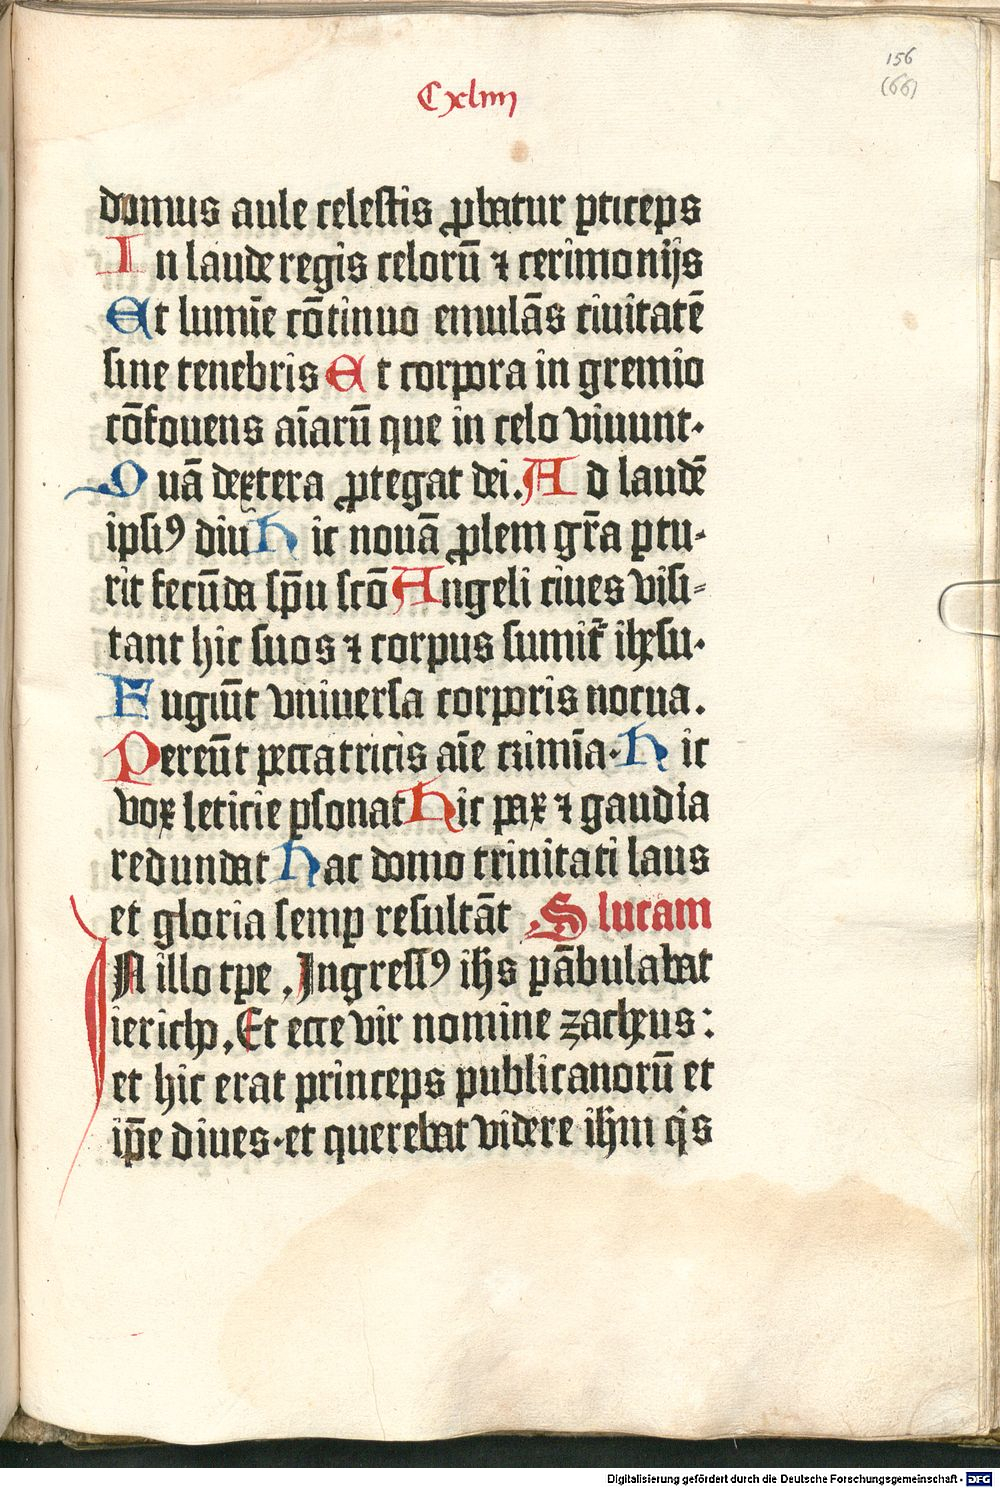 156
(66)
Cxliiij
domus aule celestis ꝓbatur ꝑticeps
In laude regis celorū ⁊ cerimonijs
Et lumīe cōtinuo emulās ciuitatē
sine tenebris Et corpora in gremio
cōfouens aīarū que in celo viuunt.
Quā dextera ꝓtegat dei. Ad laudē
ipsiꝰ diu Hic nouā ꝓlem gr̄a ꝑtu-
rit fecūda sp̄u scō Angeli ciues visi-
tant hic suos ⁊ corpus sumit̄ ihesu.
Fugiūt vniuersa corporis nocua.
Pereūt peccatricis aīe crimīa. Hic
vox leticie ꝑsonat Hic pax ⁊ gaudia
redundāt Hac domo trinitati laus
et gloria semꝑ resultāt S lucam
IN illo tꝑe. Ingressꝰ ihs ꝑābulabat
iericho. Et ecce vir nomine zacheus:
et hic erat princeps publicanorū et
ip̄e diues. et querebat videre ihm qͥs
Digitalisierung gefördert durch die Deutsche Forschungsgemeinschaft - DFG